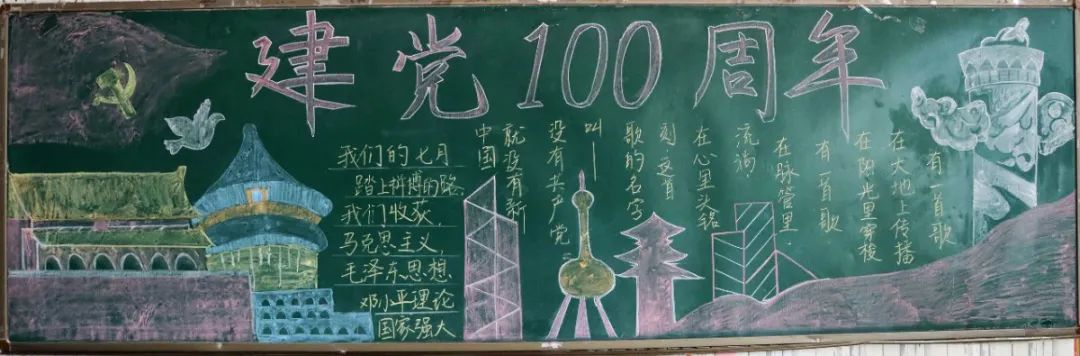 建党100周年
我们的七月
踏上拼搏的路
我们收获，
马克思主义，
毛泽东思想
邓小平理论
国家强大
有一首歌
在大地上传播
在阳光里穿梭
有一首歌
在脉管里
流淌
在心里头铭
刻 这首
歌的名字
叫——
没有共产党
就没有新
中国